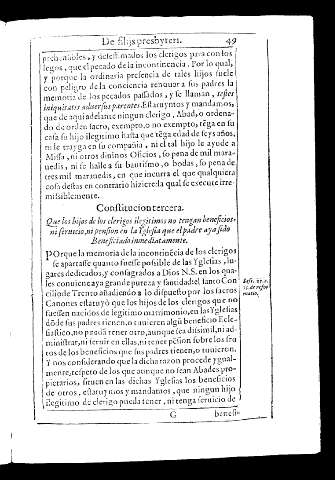 De filijs presbyteri. 49
prehensibles, y desestimados los clerigos para con los
legos, que el pecado de la incontinencia. Por lo qual,
y porque la ordinaria presencia de tales hijos suele
con peligro de la conciencia renouar a sus padres la
memoria de los pecados passados, y se llaman, testes
iniquitatis aduersus parentes. Estatuymos y mandamos,
que de aqui adelante ningun clerigo, Abad, o ordena-
do de orden sacro, exempto, o no exempto, tẽga en su
casa su hijo ilegitimo hasta que tẽga edad de seys años,
ni le trayga en su compañia, ni el tal hijo le ayude a
Missa, ni otros diuinos Oficios, so pena de mil mara-
uedis, ni se halle a su bautismo, o bodas, so pena de
tres mil marauedis, en que incurra el que qualquiera
cosa destas en contrario hiziere: la qual se execute irre-
missiblemente.
Constitucion tercera.
Que los hijos de los clerigos ilegitimos no tengan beneficios,
ni seruicio, ni pension en la Yglesia que el padre aya sido
Beneficiado inmediatamente.
POrque la memoria de la incontinẽcia de los clerigos
se apartasse quanto fuesse possible de las Yglesias, lu-
gares dedicados, y consagrados a Dios N.S. en los qua-
les conuiene aya grande pureza y santidad: el santo Con
cilio de Trento añadiendo a lo dispuesto por los sacros
Canones estatuyò que los hijos de los clerigos que no
fuessen nacidos de legitimo matrimonio, en las Yglesias
dõde sus padres tienen, o tuuieren algũ beneficio Ecle-
siastico, no puedã tener otro, aunque sea dissimil, ni ad-
ministrar, ni seruir en ellas, ni tener pẽsion sobre los fru
tos de los beneficios que sus padres tienen, o tuuieron.
Y nos considerando que la dicha razon procede ygual-
mente, respeto de los que aunque no sean Abades pro-
pietarios, siruen en las dichas Yglesias los beneficios
de otros, estatuymos y mandamos, que ningun hijo
ilegitimo de clerigo pueda tener, ni tenga seruicio de
Sess. 25. c.
15. de refor
matio.
G benefi-